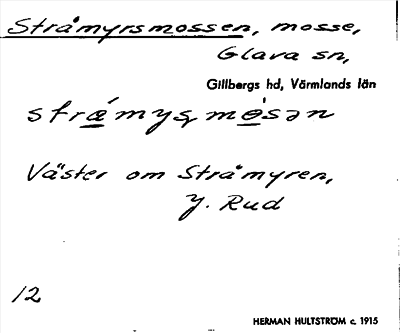 Stråmyrsmossen, mosse,
Glava sn,
Gillbergs hd, Värmlands län
stræ´myʂmøsən
Väster om Stråmyren,
Y. Rud
12
HERMAN HULTSTRÖM c. 1915